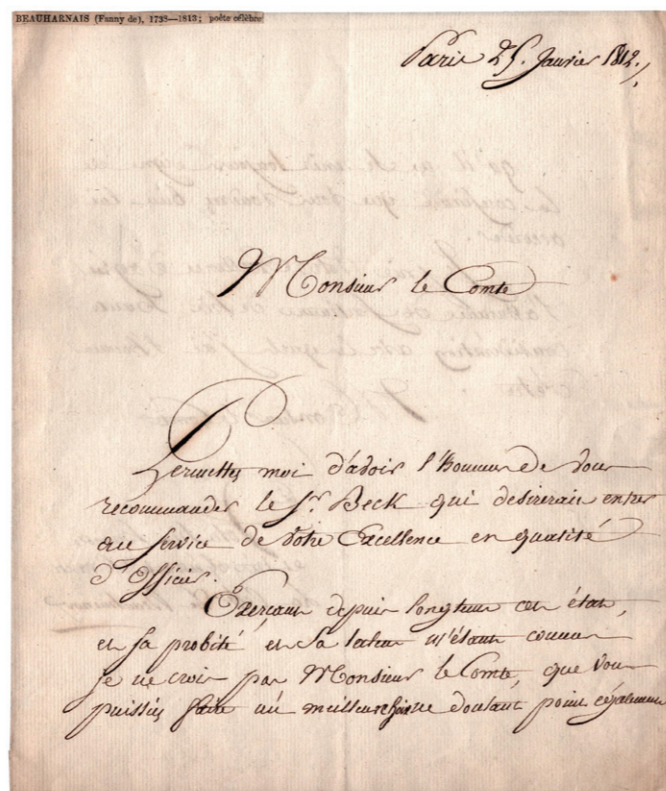 BEAUHARNAIS (Fanny de), 1738—1813; poète célèbre
Paris 25. Janvier 1812.
Monsieur le Comte
Permettes moi d'avoir l'honneur de vous
recommander le Sr. Beck qui desirerait entrer
au service de votre Excellence en qualité
d'Officier.
Exerçant depuis longtems cet état,
et sa probité et sa m'étant connue
je ne crois pas Monsieur le Comte, que vous
puissiés faire un meilleur ne doutant point également